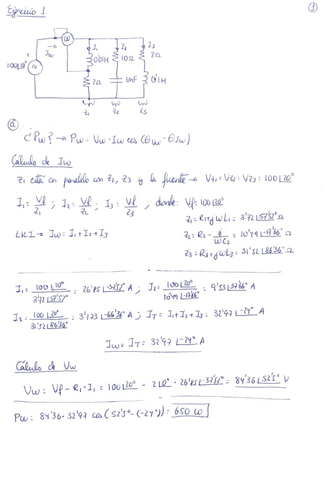 Ejercicio 1
①
W
Iw
I₁ I₂ I₃
0'01H 10Ω 2Ω
100∠20°
2Ω 1mF 0'1H
Z₁ Z₂ Z₃
a
¿Pw? → Pw = Vw · Iw cos (θvw - θIw)
Cálculo de Iw
Z₁ está en paralelo con Z₂, Z₃ y la fuente → Vz₁ = Vz₂ = Vz₃ = 100∠20°
I₁ = Vf/Z₁ ; I₂ = Vf/Z₂ ; I₃ = Vf/Z₃ , donde: Vf = 100∠20°
Z₁ = R₁ + jωL₁ = 3'72∠57'52° Ω
LKI → Iw = I₁ + I₂ + I₃
Z₂ = R₂ - j/ωC₂ = 10'49∠-17'66° Ω
Z₃ = R₃ + jωL₃ = 31'52∠86'36° Ω
I₁ = 100∠20° / 3'72∠57'52° = 26'85∠-37'52° A ; I₂ = 100∠20° / 10'49∠-17'66° = 9'53∠37'66° A
I₃ = 100∠20° / 31'52∠86'36° = 3'173∠-66'36° A ; I_T = I₁ + I₂ + I₃ = 32'97∠-24° A
Iw = I_T = 32'97∠-24° A
Cálculo de Vw
Vw = Vf - R₁ · I₁ = 100∠20° - 2∠0° · 26'85∠-37'52° = 84'36∠52'5° V
Pw = 84'36 · 32'97 cos (52'5° - (-24°)) = 650 W